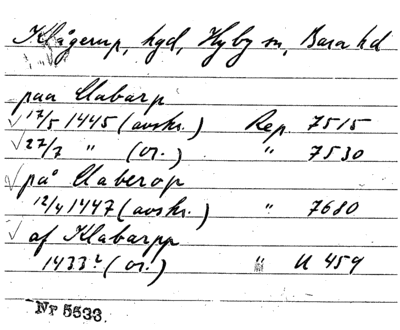 Klågerup, hgd, Hyby sn, Bara hd
paa Clabarp
17/5 1445 (avskr.) Rep. 7515
27/7 " (or.) " 7530
på Claberop
12/4 1447 (avskr.) " 7680
af Klabarpp
1433 2 (or.) " U 459
Nr 5533.